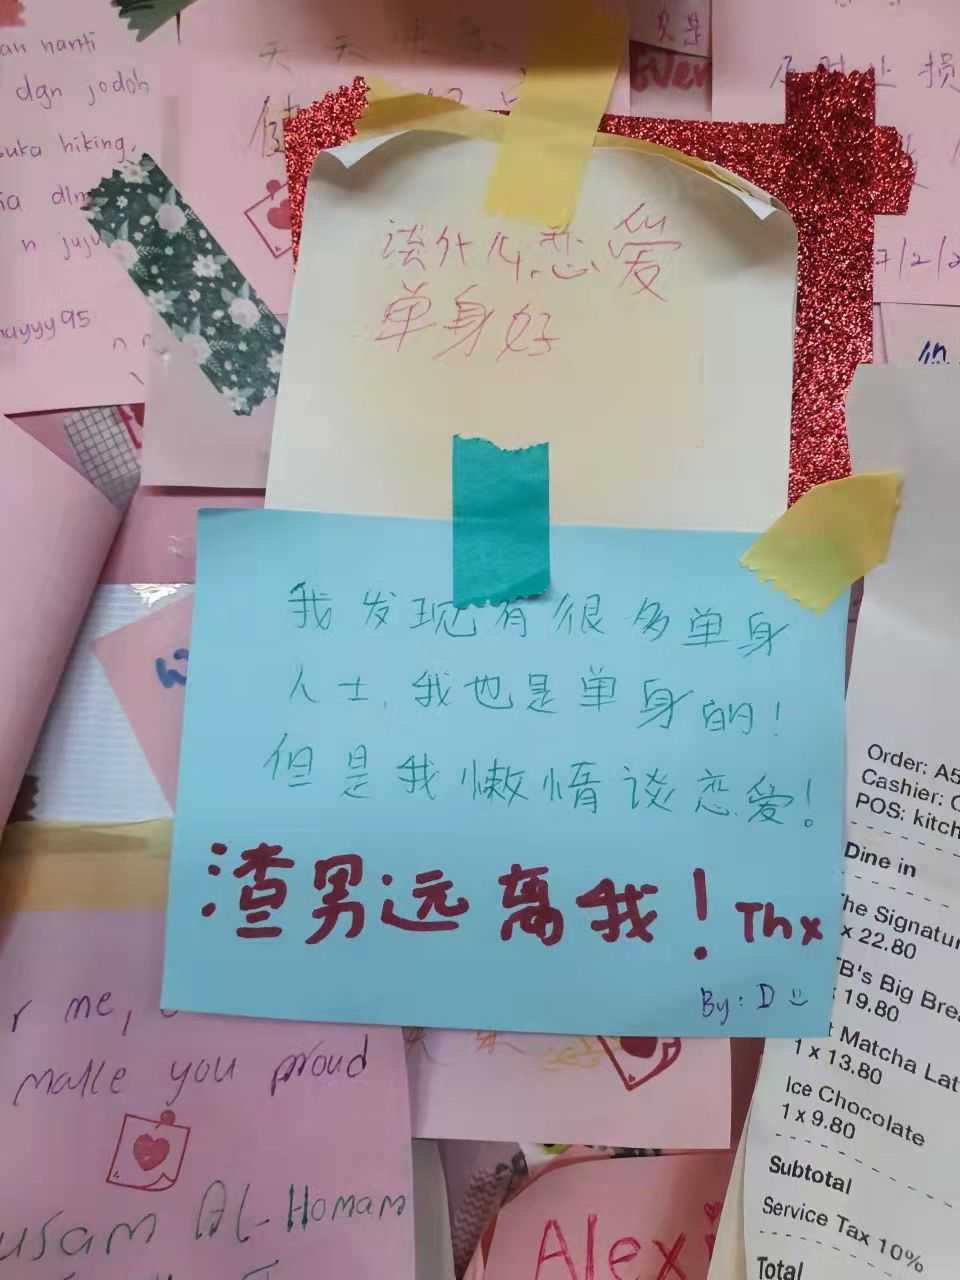 an nanti
dgn jodoh
suka hiking,
dlm
n juju
nayyy95
天天
及时止损
谈什么恋爱
单身好
我发现有很多单身
人士,我也是单身的!
但是我懒惰谈恋爱!
渣男远离我! Thx
By: D
Order: A5
Cashier: C
POS: kitch
Dine in
The Signatur
x 22.80
TB's Big Brea
19.80
t Matcha Lat
1 x 13.80
Ice Chocolate
1 x 9.80
Subtotal
Service Tax 10%
Total
r me,
make you proud
usam Al-Homam
Alexi